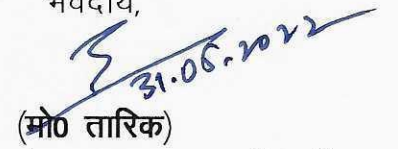 भवदीय,
31.05.2022
(मो0 तारिक)